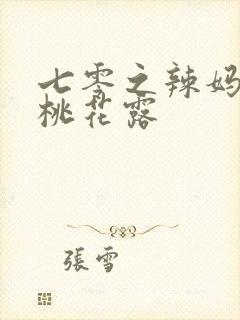 七零之辣妈
桃花露
張雪